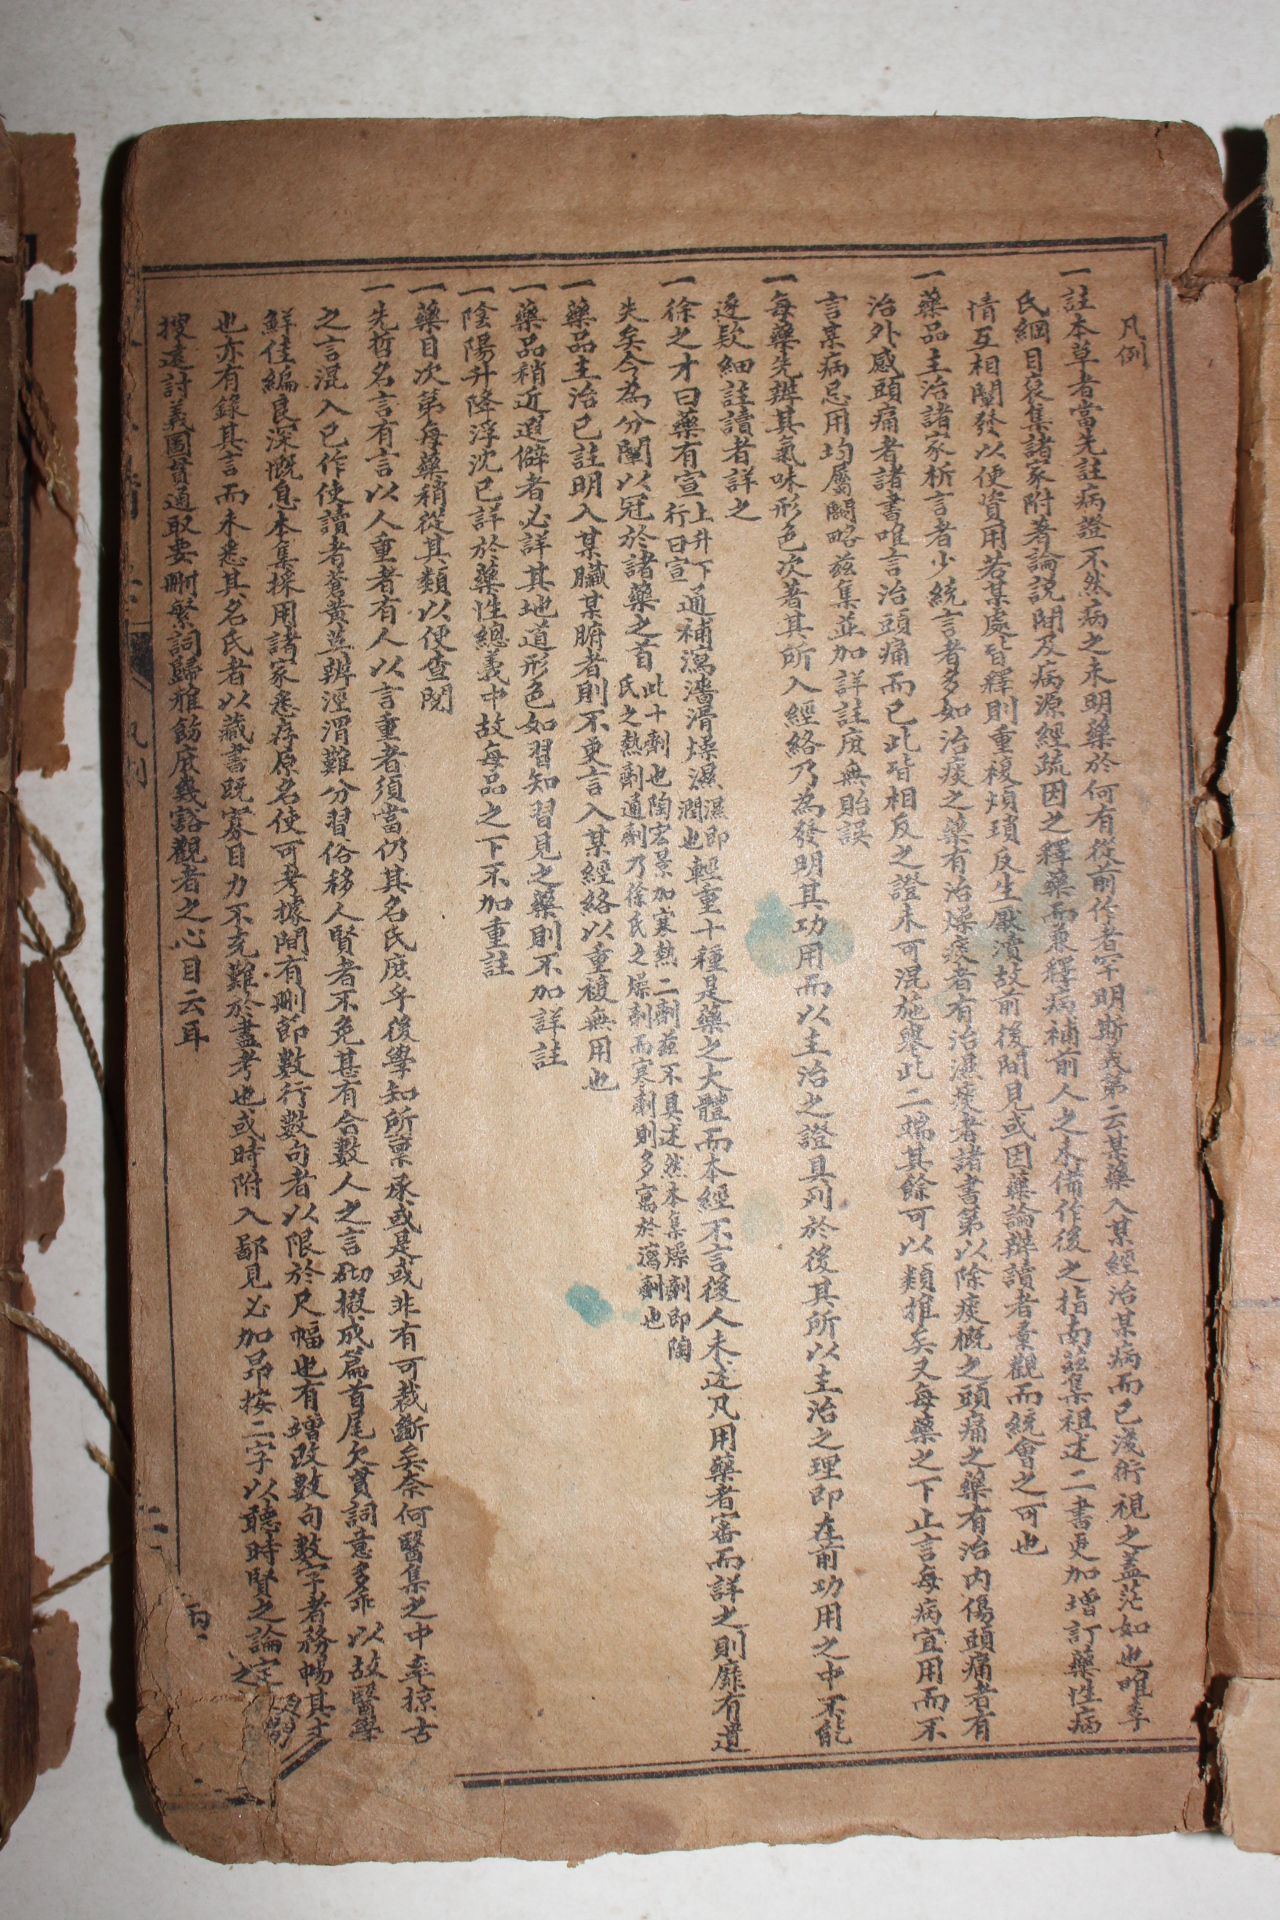 凡例
一註本草者當先註病證不然病之未明藥於何有從前作者罕明斯義第云某藥入某經治某病而已淺術視之蓋茫如也唯李
氏綱目裒集諸家附著論説間及病源經疏因之釋藥而兼釋病補前人之未備作後之指南茲集祖述二書更加增訂藥性病
情互相闡發以便資用若某處皆釋則重複煩瑣反生厭瀆故前後間見或因藥論辯讀者彙觀而統會之可也
一藥品主治諸家析言者少統言者多如治痰之藥有治燥痰者有治濕痰者諸書第以除痰概之頭痛之藥有治内傷頭痛者有
治外感頭痛者諸書唯言治頭痛而已此皆相反之證未可混施舉此二端其餘可以類推矣又每藥之下止言每病宜用而不
言某病忌用均屬闕略茲集並加詳註庶無貽誤
一每藥先辨其氣味形色次著其所入經絡乃為發明其功用而以主治之證具列於後其所以主治之理即在前功用之中不能
逐欵細註讀者詳之
一徐之才曰藥有宣上升下行曰宣通補瀉濇滑燥濕濕即潤也輕重十種是藥之大體而本經不言後人未述凡用藥者審而詳之則靡有遺
失矣今為分闡以冠於諸藥之首此十劑也陶宏景加寒熱二劑茲不具述然本集燥劑即陶氏之熱劑通劑乃徐氏之燥劑而寒劑則多寓於瀉劑也
一藥品主治已註明入某臟某腑者則不更言入某經絡以重複無用也
一藥品稍近遐僻者必詳其地道形色如習知習見之藥則不加詳註
一陰陽升降浮沈已詳於藥性總義中故每品之下不加重註
一藥目次第每藥稍從其類以便查閱
一先哲名言有言以人重者有人以言重者須當仍其名氏庶乎後學知所稟承或是或非有可裁斷矣奈何醫集之中率掠古
之言混入已作使讀者蒼黄莫辨涇渭難分習俗移人賢者不免甚有合數人之言砌掇成篇首尾欠貫詞意多乖以故醫學
鮮佳編良深慨息本集採用諸家悉存原名使可考據間有刪節數行數句者以限於尺幅也有增改數句數字者務暢其文
也亦有錄其言而未悉其名氏者以藏書既寡目力不充難於盡考也或時附入鄙見必加昂按二字以聽時賢之論定之
搜遠討義圖貫通取要刪繁詞歸雅飭庶幾豁觀者之心目云耳
凡例